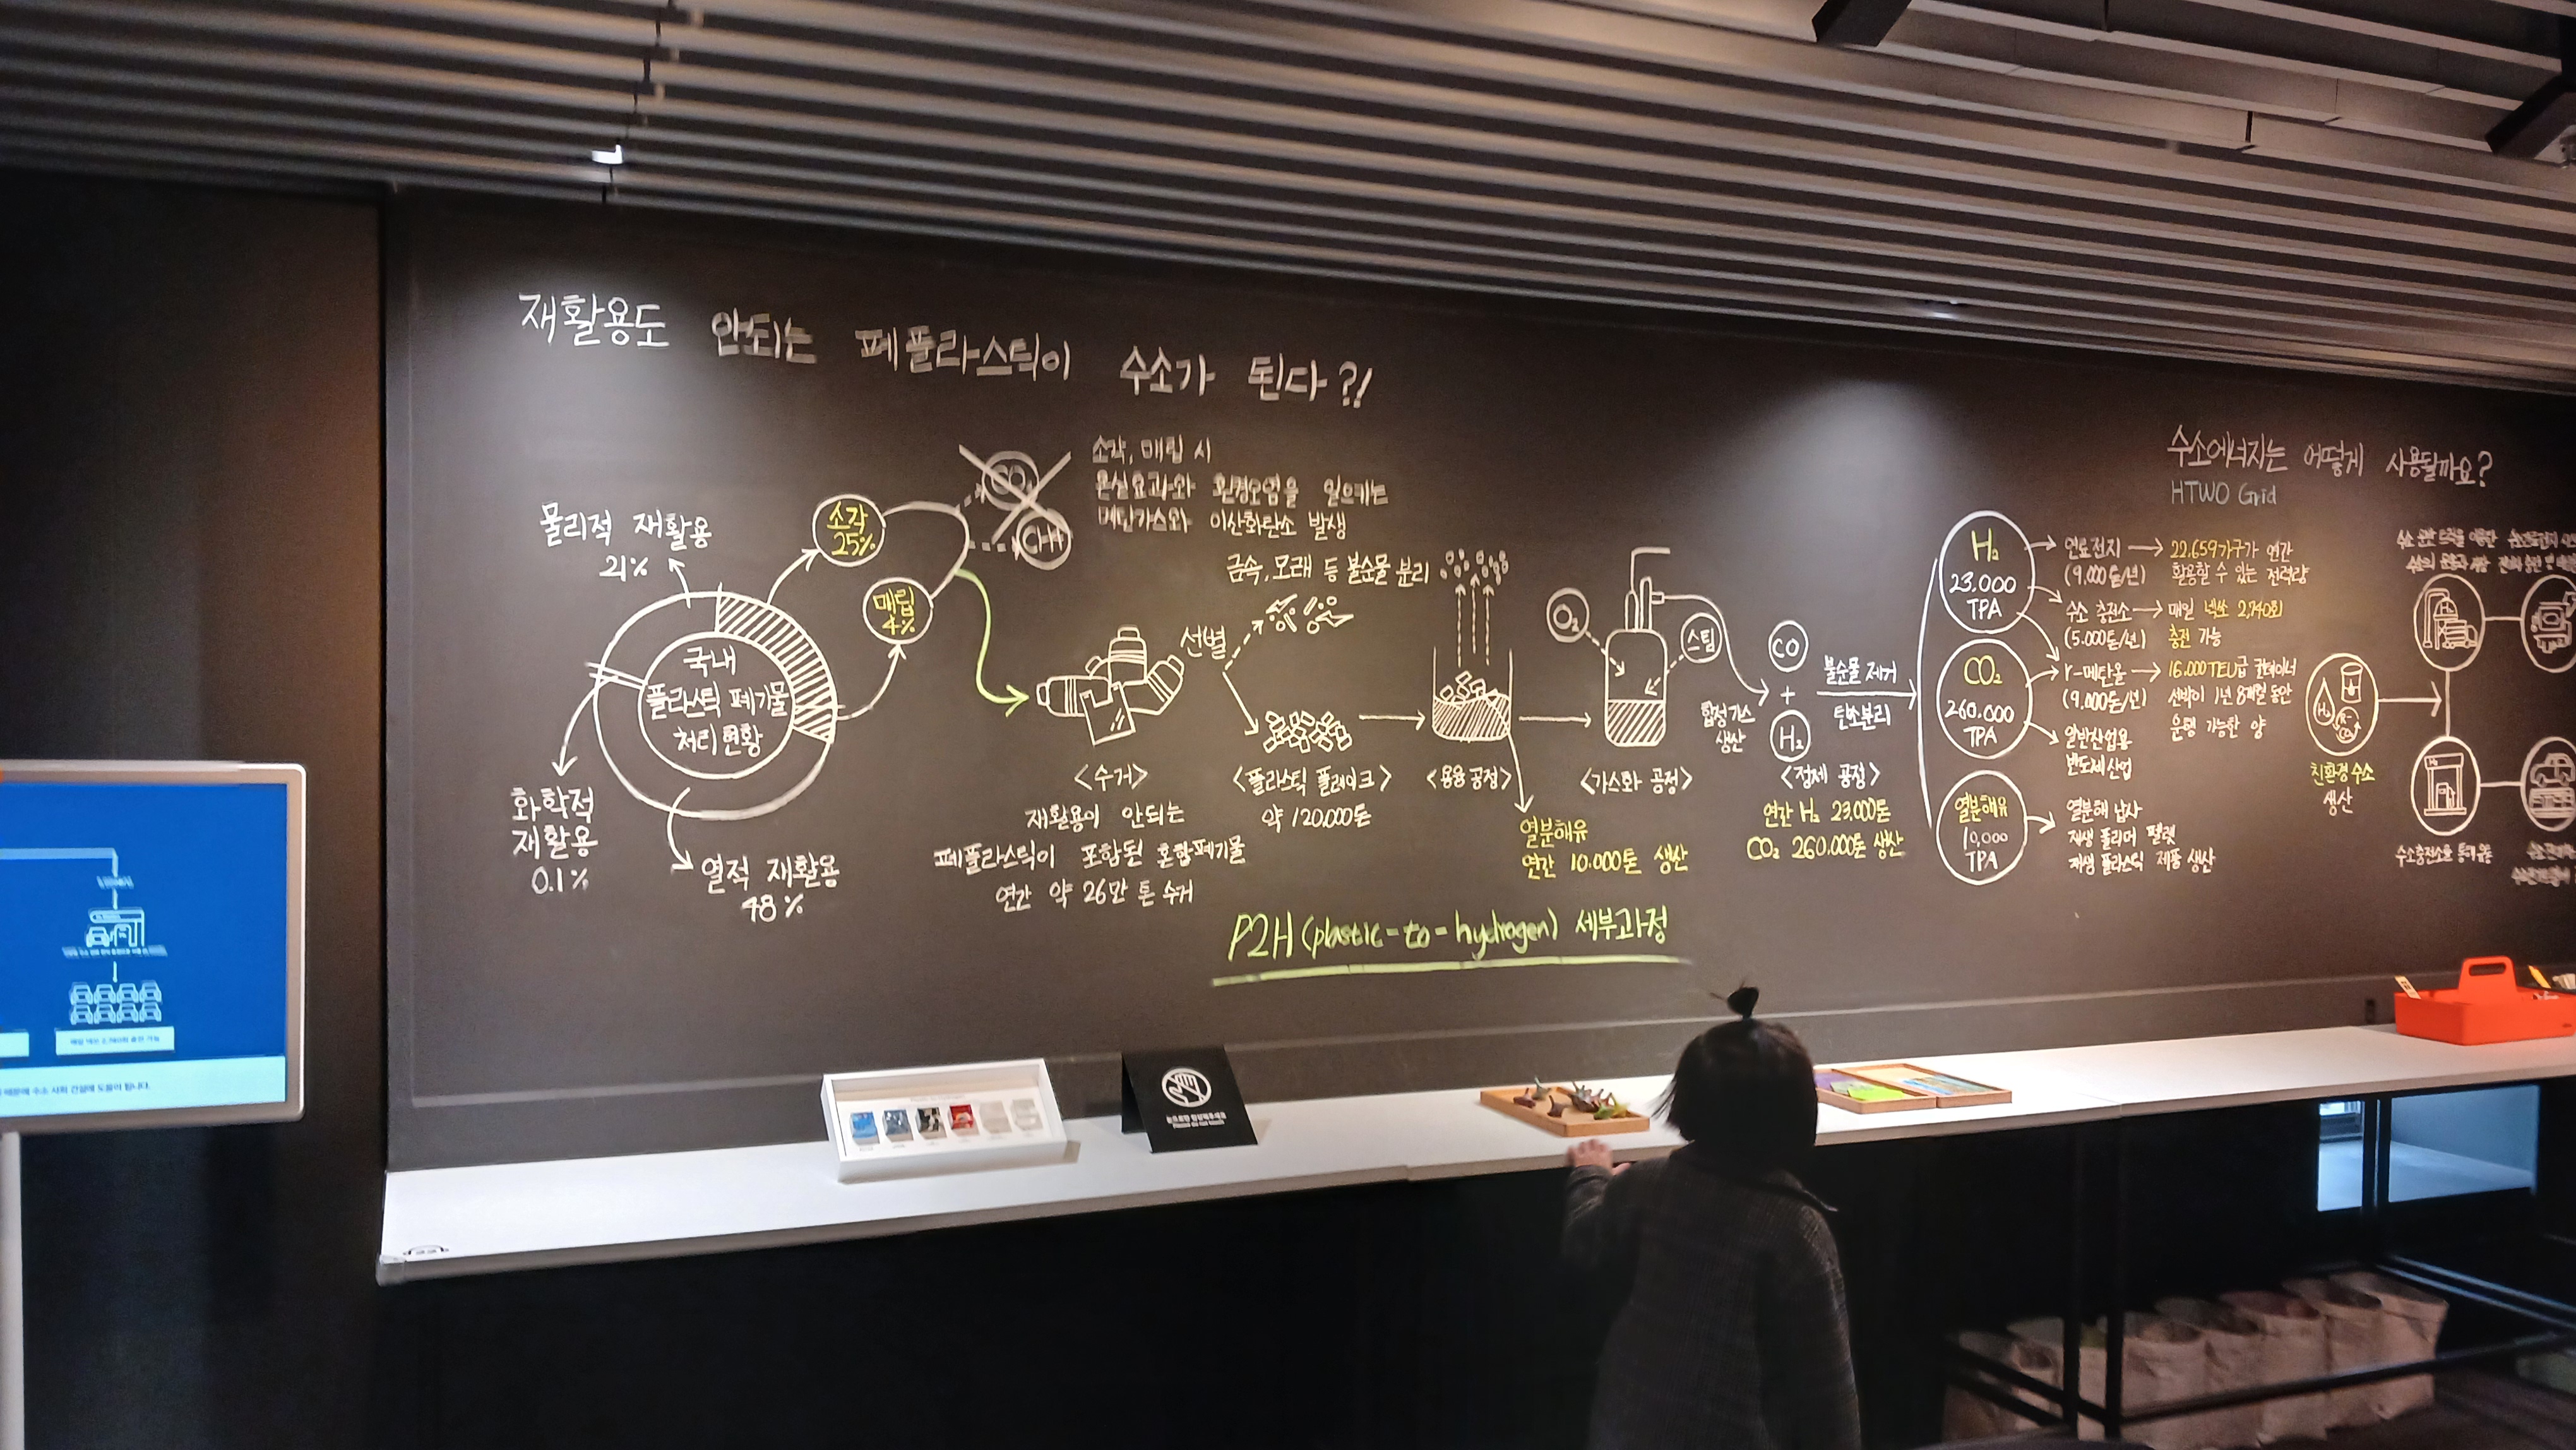 재활용도 안되는 폐플라스틱이 수소가 된다?!
물리적 재활용
21%
소각
25%
매립
4%
국내
플라스틱 폐기물
처리현황
화학적
재활용
0.1%
열적 재활용
48%
CO₂
CH4
소각, 매립 시
온실효과와 환경오염을 일으키는
메탄가스와 이산화탄소 발생
금속, 모래 등 불순물 분리
선별
<수거>
재활용이 안되는
폐플라스틱이 포함된 혼합폐기물
연간 약 26만 톤 수거
<플라스틱 플레이크>
약 120.000톤
<용융 공정>
열분해유
연간 10.000톤 생산
O₂
스팀
<가스화 공정>
합성가스
생산
CO
+
H₂
<정제 공정>
연간 H₂ 23.000톤
CO₂ 260.000톤 생산
불순물 제거
탄소분리
P2H (plastic-to-hydrogen) 세부과정
수소에너지는 어떻게 사용될까요?
HTWO Grid
H₂
23.000
TPA
연료전지
(9.000톤/년)
22.659가구가 연간
활용할 수 있는 전력량
수소 충전소
(5.000톤/년)
매일 넥쏘 2,740회
충전 가능
CO₂
260.000
TPA
r-메탄올
(9.000톤/년)
16.000TEU급 컨테이너
선박이 1년 8개월 동안
운행 가능한 양
일반산업용
반도체산업
열분해유
10,000
TPA
열분해 납사
재생 폴리머 펠렛
재생 플라스틱 제품 생산
H₂
친환경 수소
생산
수소충전소를 통해
때문에 수소 사회 건설에 도움이 됩니다.